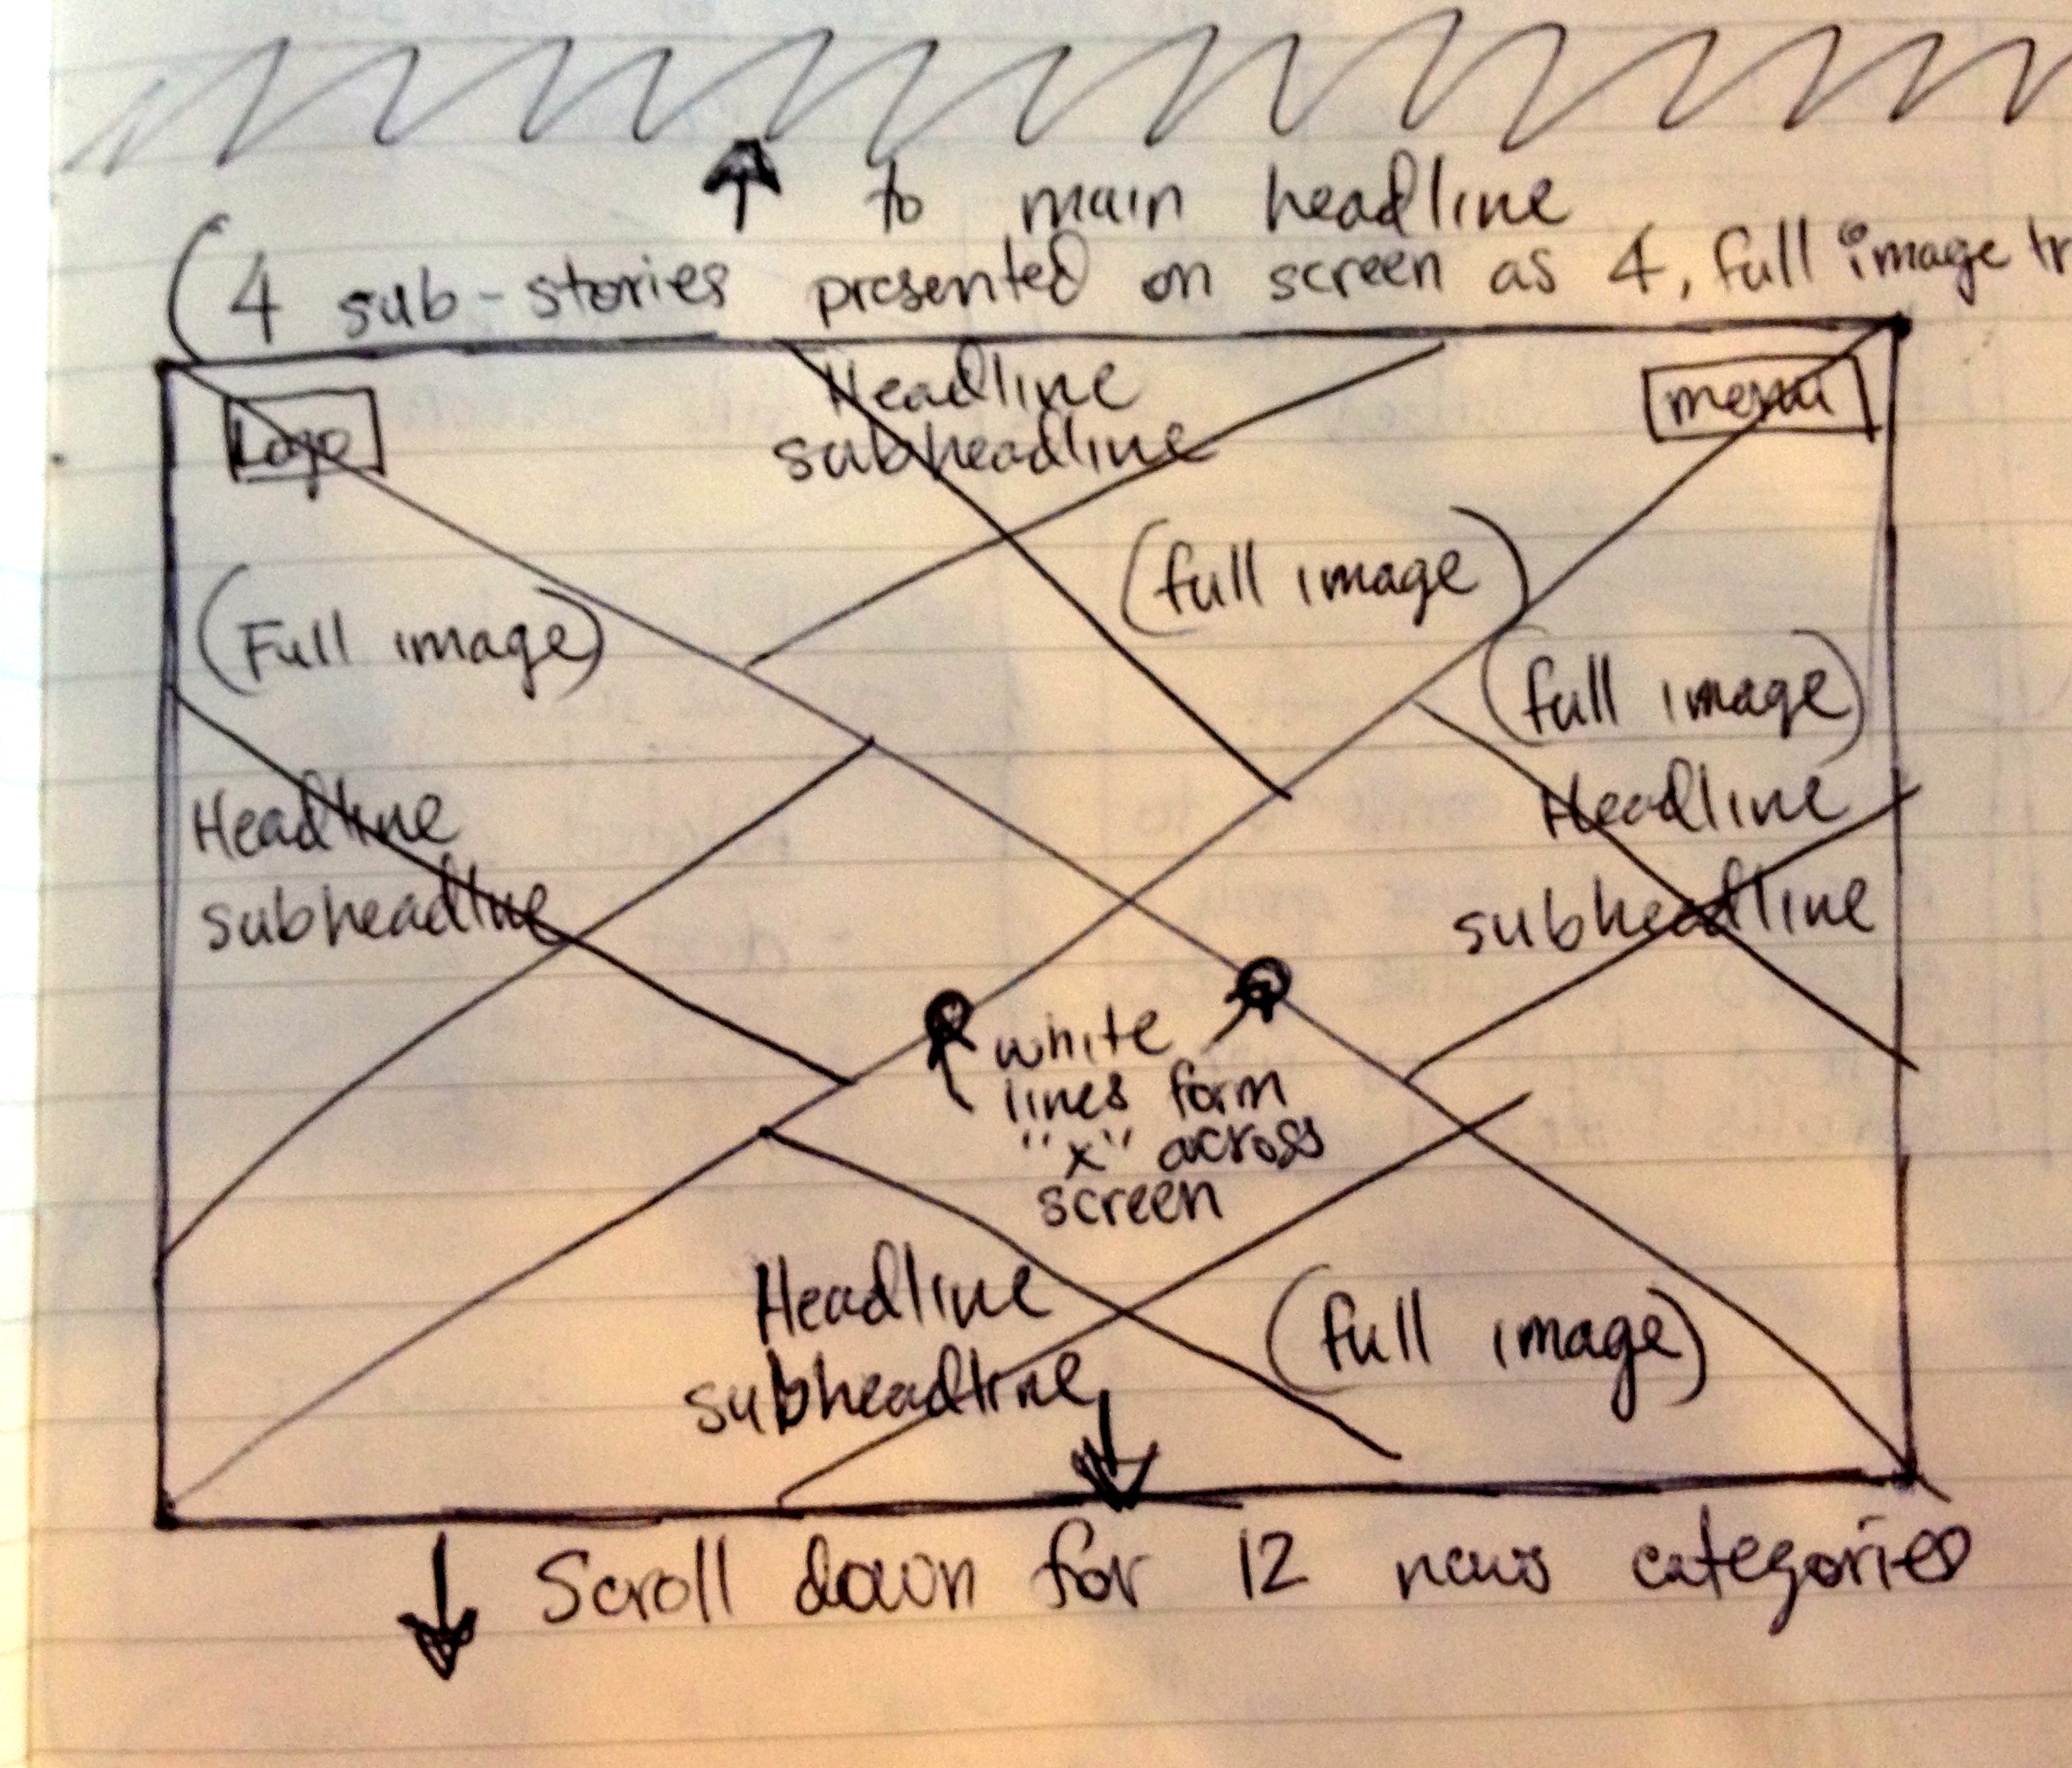 to main headline
(4 sub-stories presented on screen as 4, full image
Headline
subheadline
Logo
menu
(full image)
(Full image)
(full image)
Headline
subheadline
Headline
subheadline
white
lines form
"x" across
screen
Headline
subheadline
(full image)
Scroll down for 12 news categories